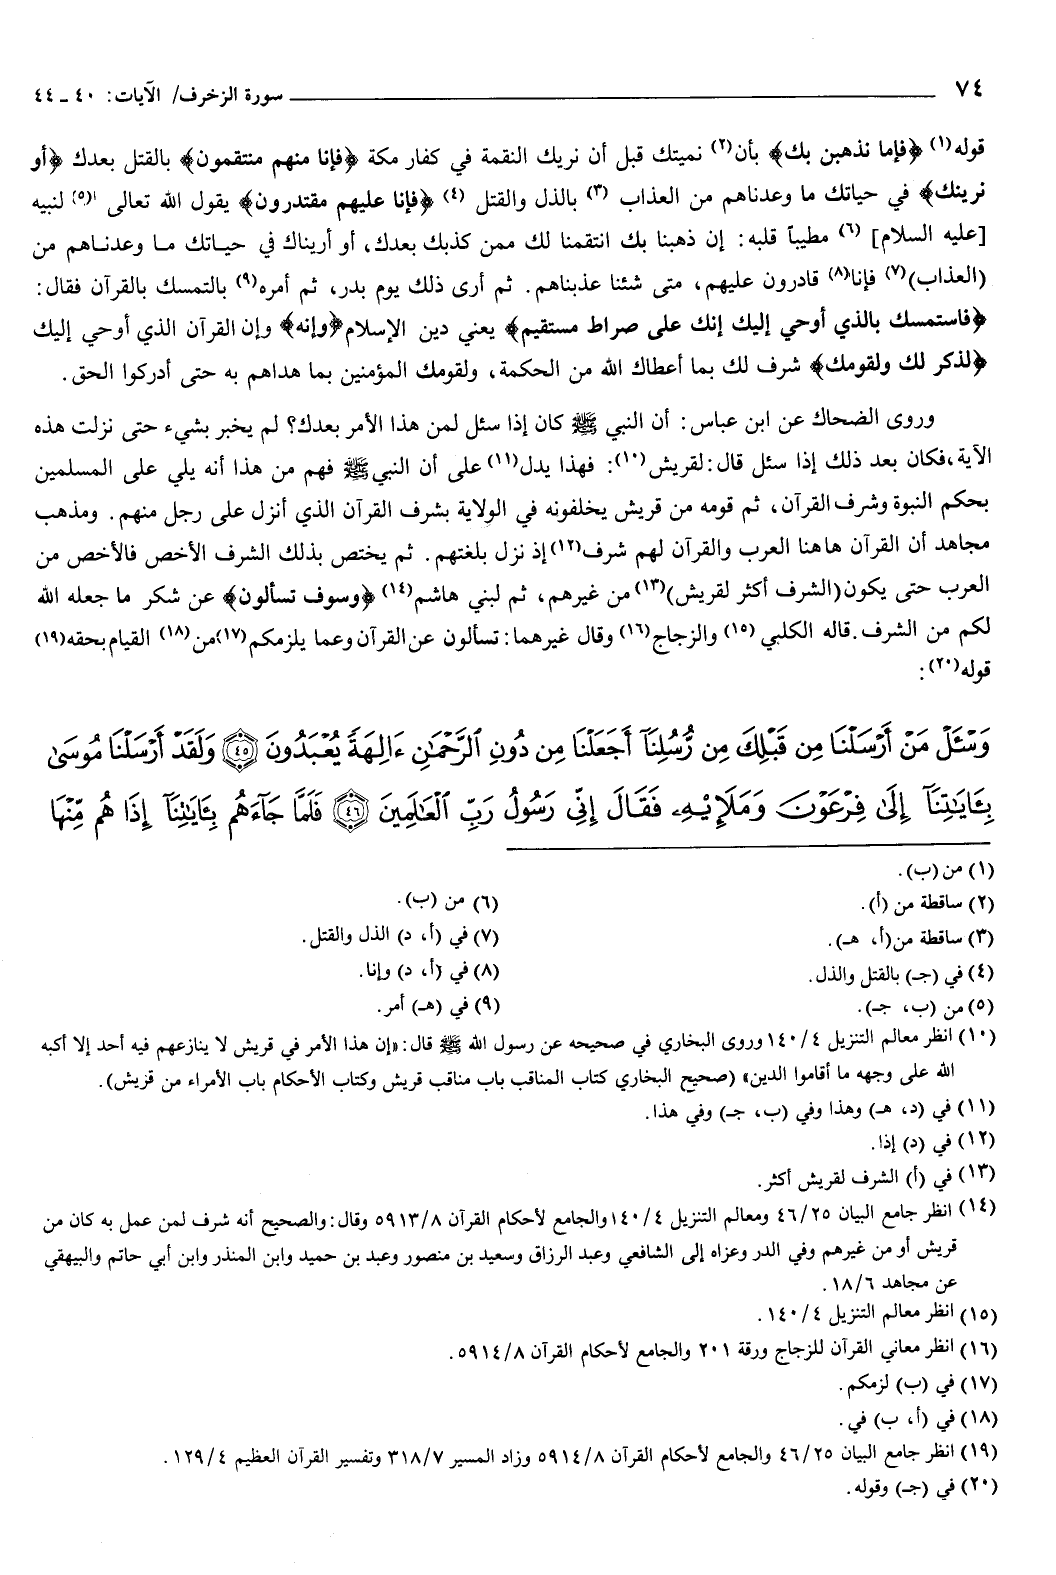 ٧٤ ــــــــــــــــــــــــــــــــ سورة الزخرف/ الآيات: ٤٠ ـ ٤٤
قوله(١) ﴿فإما نذهبن بك﴾ بأن(٢) نميتك قبل أن نريك النقمة في كفار مكة ﴿فإنا منهم منتقمون﴾ بالقتل بعدك ﴿أو
نرينك﴾ في حياتك ما وعدناهم من العذاب (٣) بالذل والقتل (٤) ﴿فإنا عليهم مقتدرون﴾ يقول الله تعالى (٥) لنبيه
[عليه السلام] (٦) مطيباً قلبه: إن ذهبنا بك انتقمنا لك ممن كذبك بعدك، أو أريناك في حياتك ما وعدناهم من
(العذاب)(٧) فإنا(٨) قادرون عليهم، متى شئنا عذبناهم. ثم أرى ذلك يوم بدر، ثم أمره(٩) بالتمسك بالقرآن فقال:
﴿فاستمسك بالذي أوحي إليك إنك على صراط مستقيم﴾ يعني دين الإسلام﴿وإنه﴾ وإن القرآن الذي أوحي إليك
﴿لذكر لك ولقومك﴾ شرف لك بما أعطاك الله من الحكمة، ولقومك المؤمنين بما هداهم به حتى أدركوا الحق.
وروى الضحاك عن ابن عباس: أن النبي ﷺ كان إذا سئل لمن هذا الأمر بعدك؟ لم يخبر بشيء حتى نزلت هذه
الآية،فكان بعد ذلك إذا سئل قال:لقريش(١٠): فهذا يدل(١١) على أن النبي ﷺ فهم من هذا أنه يلي على المسلمين
بحكم النبوة وشرف القرآن، ثم قومه من قريش يخلفونه في الولاية بشرف القرآن الذي أنزل على رجل منهم. ومذهب
مجاهد أن القرآن هاهنا العرب والقرآن لهم شرف(١٢)إذ نزل بلغتهم. ثم يختص بذلك الشرف الأخص فالأخص من
العرب حتى يكون(الشرف أكثر لقريش)(١٣) من غيرهم، ثم لبني هاشم(١٤) ﴿وسوف تسألون﴾ عن شكر ما جعله الله
لكم من الشرف.قاله الكلبي (١٥) والزجاج(١٦) وقال غيرهما:تسألون عن القرآن وعما يلزمكم(١٧)من(١٨) القيام بحقه(١٩)
قوله(٢٠):
وَسْـَٔلْ مَنْ أَرْسَلْنَا مِن قَبْلِكَ مِن رُّسُلِنَآ أَجَعَلْنَا مِن دُونِ ٱلرَّحْمَٰنِ ءَالِهَةً يُعْبَدُونَ ۝٤٥ وَلَقَدْ أَرْسَلْنَا مُوسَىٰ
بِـَٔايَٰتِنَآ إِلَىٰ فِرْعَوْنَ وَمَلَإِيْهِۦ فَقَالَ إِنِّي رَسُولُ رَبِّ ٱلْعَٰلَمِينَ ۝٤٦ فَلَمَّا جَآءَهُم بِـَٔايَٰتِنَآ إِذَا هُم مِّنْهَا
(١) من (ب).
(٢) ساقطة من (أ).
(٣) ساقطة من(أ، هـ).
(٤) في (جـ) بالقتل والذل.
(٥) من (ب، جـ).
(٦) من (ب).
(٧) في (أ، د) الذل والقتل.
(٨) في (أ، د) وإنا.
(٩) في (هـ) أمر.
(١٠) انظر معالم التنزيل ١٤٠/٤ وروى البخاري في صحيحه عن رسول الله ﷺ قال:«إن هذا الأمر في قريش لا ينازعهم فيه أحد إلا أكبه
الله على وجهه ما أقاموا الدين» (صحيح البخاري كتاب المناقب باب مناقب قريش وكتاب الأحكام باب الأمراء من قريش).
(١١) في (د، هـ) وهذا وفي (ب، جـ) وفي هذا.
(١٢) في (د) إذا.
(١٣) في (أ) الشرف لقريش أكثر.
(١٤) انظر جامع البيان ٤٦/٢٥ ومعالم التنزيل ١٤٠/٤ والجامع لأحكام القرآن ٥٩١٣/٨ وقال:والصحيح أنه شرف لمن عمل به كان من
قريش أو من غيرهم وفي الدر وعزاه إلى الشافعي وعبد الرزاق وسعيد بن منصور وعبد بن حميد وابن المنذر وابن أبي حاتم والبيهقي
عن مجاهد ١٨/٦.
(١٥) انظر معالم التنزيل ١٤٠/٤.
(١٦) انظر معاني القرآن للزجاج ورقة ٢٠١ والجامع لأحكام القرآن ٥٩١٤/٨.
(١٧) في (ب) لزمكم.
(١٨) في (أ، ب) في.
(١٩) انظر جامع البيان ٤٦/٢٥ والجامع لأحكام القرآن ٥٩١٤/٨ وزاد المسير ٣١٨/٧ وتفسير القرآن العظيم ١٢٩/٤.
(٢٠) في (جـ) وقوله.